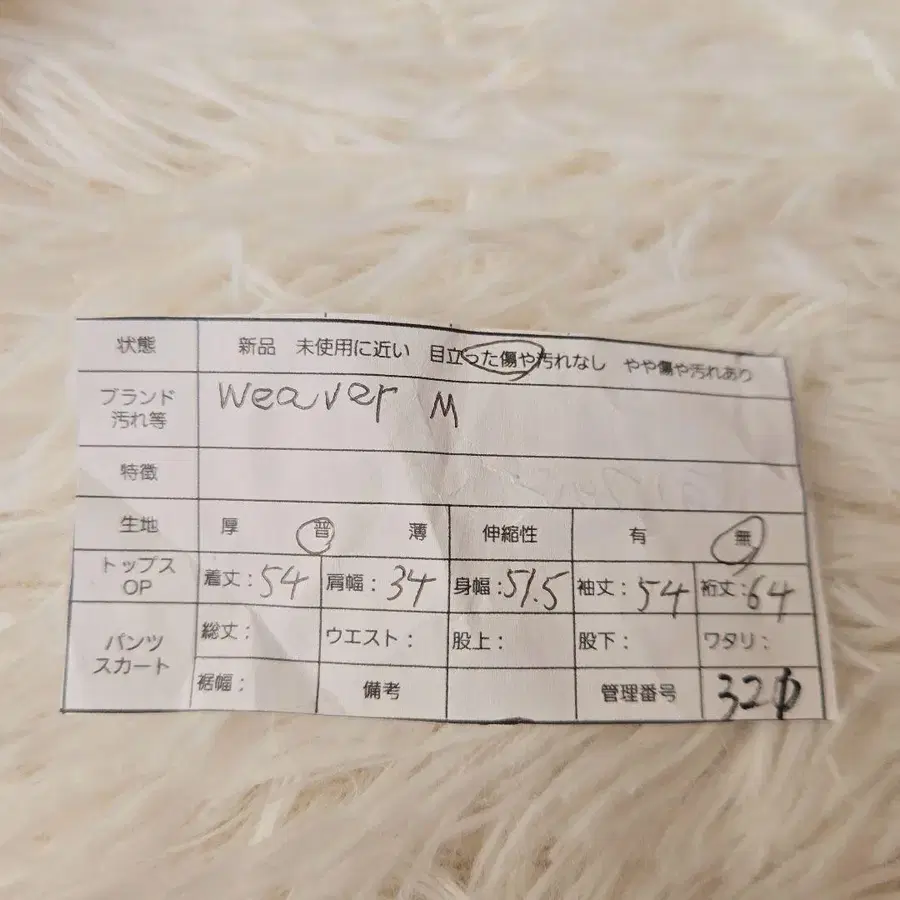 状態 新品 未使用に近い 目立った傷や汚れなし やや傷や汚れあり
ブランド 汚れ等 weaver M
特徴
生地 厚 普 薄 伸縮性 有 無
トップス OP 着丈:54 肩幅:34 身幅:51.5 袖丈:54 裄丈:64
パンツ スカート 総丈: ウエスト: 股上: 股下: ワタリ:
裾幅: 備考 管理番号